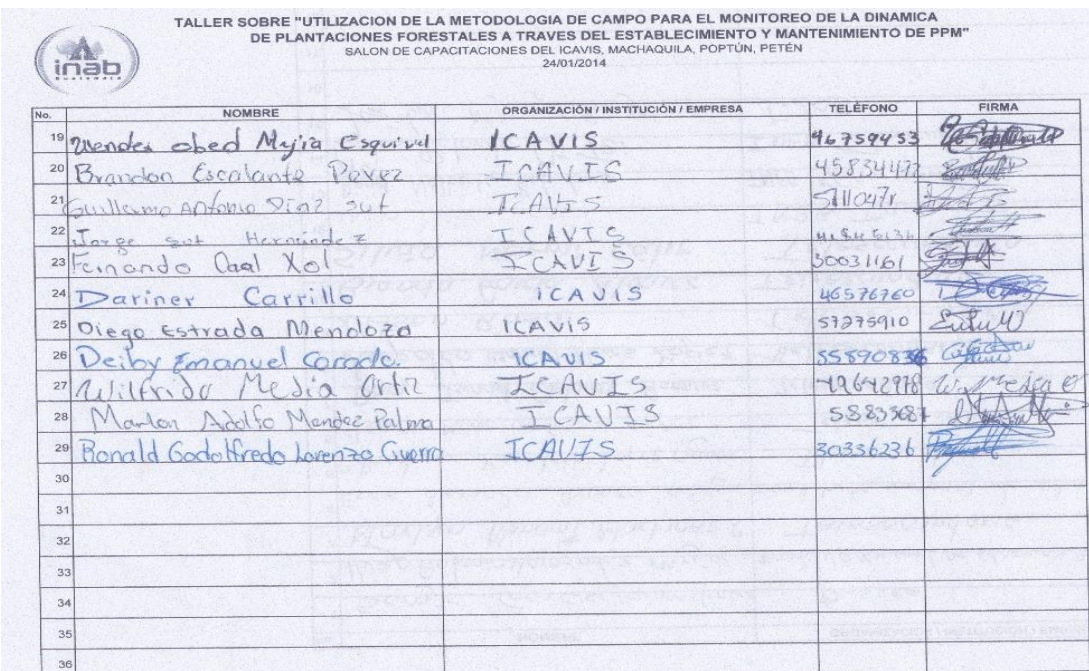 TALLER SOBRE "UTILIZACION DE LA METODOLOGIA DE CAMPO PARA EL MONITOREO DE LA DINAMICA
DE PLANTACIONES FORESTALES A TRAVES DEL ESTABLECIMIENTO Y MANTENIMIENTO DE PPM"
SALON DE CAPACITACIONES DEL ICAVIS, MACHAQUILA, POPTÚN, PETÉN
24/01/2014
inab
GUATEMALA
No. NOMBRE ORGANIZACIÓN / INSTITUCIÓN / EMPRESA TELÉFONO FIRMA
19 obed Mejia Esquivel ICAVIS 46759453
20 Brandon Escalante Pérez ICAVIS
21 Guillermo Antonio Díaz sut ICAVIS
22 Jorge sut Hernández ICAVIS
23 Fernando Caal Xol ICAVIS 30031161
24 Dariner Carrillo ICAVIS 46576760
25 Diego Estrada Mendoza ICAVIS 57275910
26 Deiby Emanuel ICAVIS 55890836
27 Wilfrido Ortiz ICAVIS 49642978
28 Marlon Adolfo Mendez Palma ICAVIS
29 Ronald Godolfredo Lorenzo Guerra ICAVIS 30336236
30
31
32
33
34
35
36